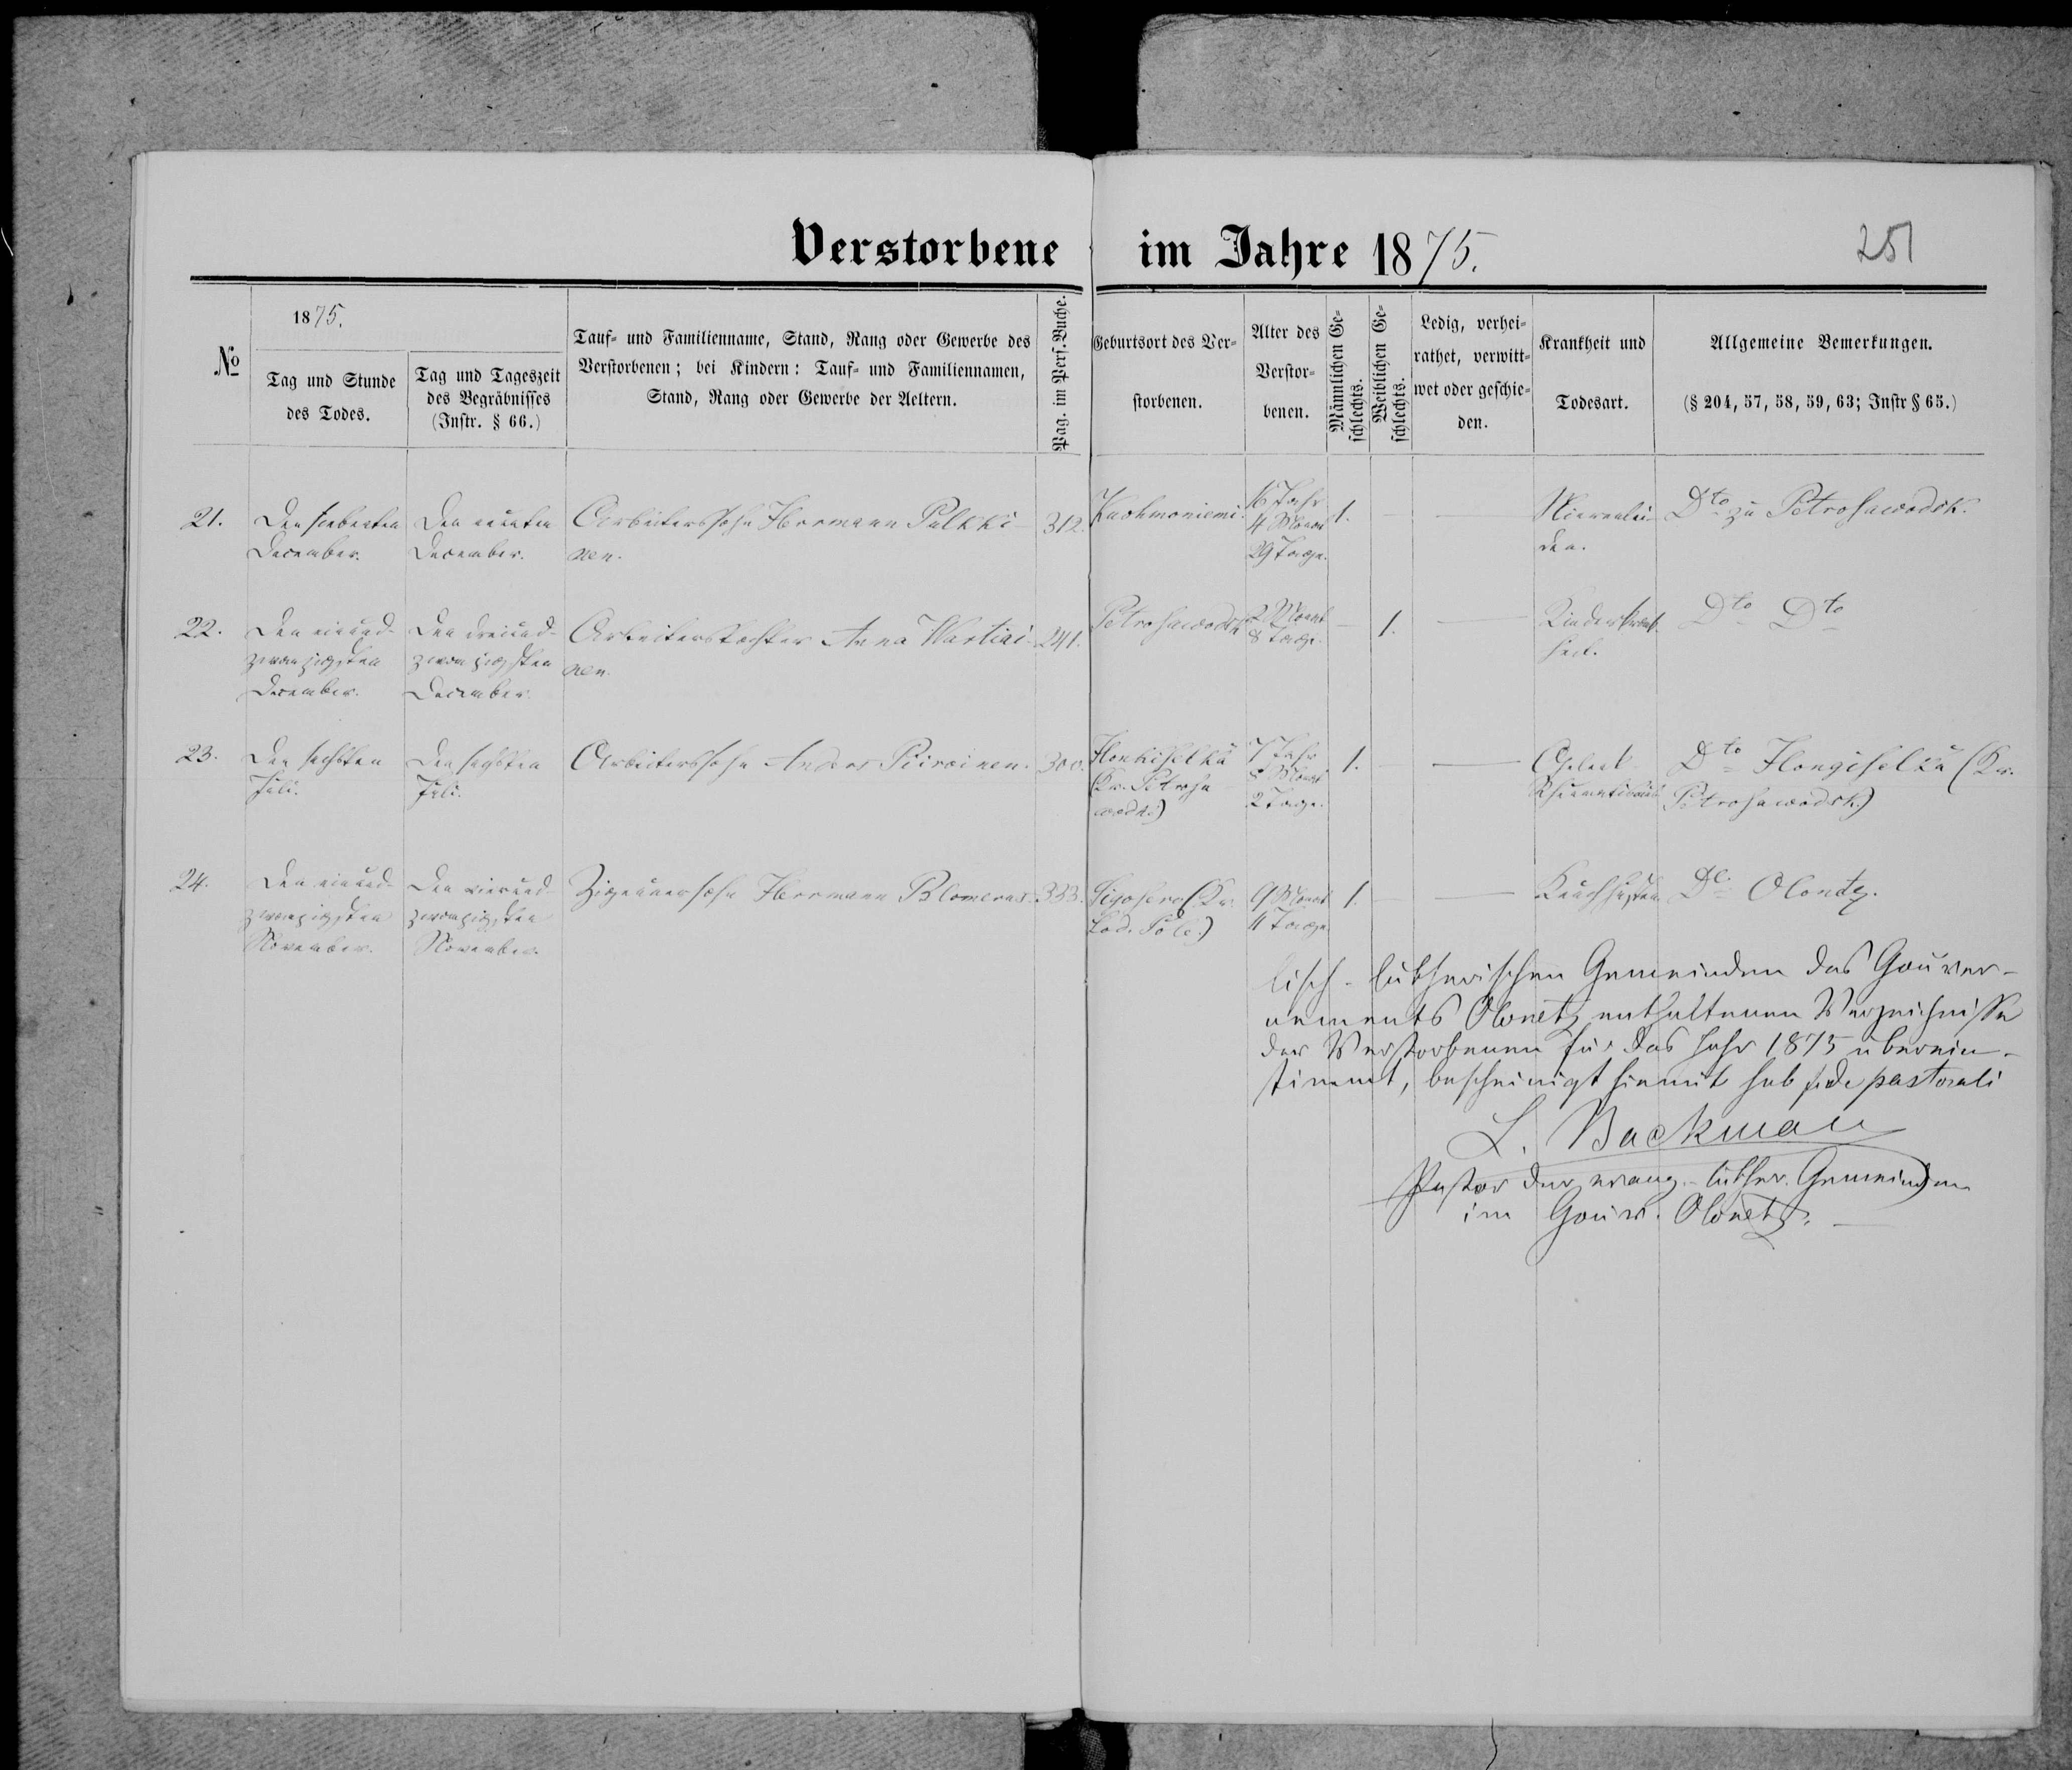 Verstorbene im Jahre 1875.
251
No
1875.
Tag und Stunde
des Todes.
Tag und Tageszeit
des Begräbnisses
(Instr. § 66.)
Tauf- und Familienname, Stand, Rang oder Gewerbe des
Verstorbenen; bei Kindern: Tauf- und Familiennamen,
Stand, Rang oder Gewerbe der Aeltern.
Pag. im Pers.-Buche.
Geburtsort des Ver-
storbenen.
Alter des
Verstor-
benen.
Männlichen Ge-
schlechts.
Weiblichen Ge-
schlechts.
Ledig, verhei-
rathet, verwitt-
wet oder geschie-
den.
Krankheit und
Todesart.
Allgemeine Bemerkungen.
(§ 204, 57, 58, 59, 63; Instr § 65.)
21.
Den siebenten
December.
Den neunten
December.
Arbeiterssohn Herrmann Pulkki-
nen.
312.
Kuohmoniemi.
16 Jahr
4 Monat
29 Tage.
1.
Nierenlei-
den.
Dto zu Petrosawodsk.
22.
Den einund-
zwanzigsten
December.
Den dreiund-
zwanzigsten
December.
Arbeiterstochter Anna Wartiai-
nen.
241.
Petrosawodsk
2 Monat
8 Tage.
1.
Kinderkrank-
heit.
Dto Dto
23.
Den sechsten
Juli.
Den sechsten
Juli.
Arbeiterssohn Anders Piiroinen.
300.
Honkiselkä
(Kr. Petrosa
wodsk)
7 Jahr
8 Monat
2 Tage.
1.
Rheumatismus
Dto Hongiselkä (Kr.
Petrosawodsk)
24.
Den einund-
zwanzigsten
November.
Den vierund-
zwanzigsten
November.
Zigeunersohn Herrmann Blomerus.
333.
Sigosero (Kr.
Lod. Pole.)
9 Monat
11 Tage
1.
Keuchhusten.
Do Olonetz.
lisch-lutherischen Gemeinden des Gouver-
nements Olonetz enthaltenen Verzeichnisse
der Verstorbenen für das Jahr 1875 überein-
stimmt, bescheinigt hiemit sub fide pastorali
L. Backman
Pastor der evang.-luther. Gemeinden
im Gouv. Olonetz.